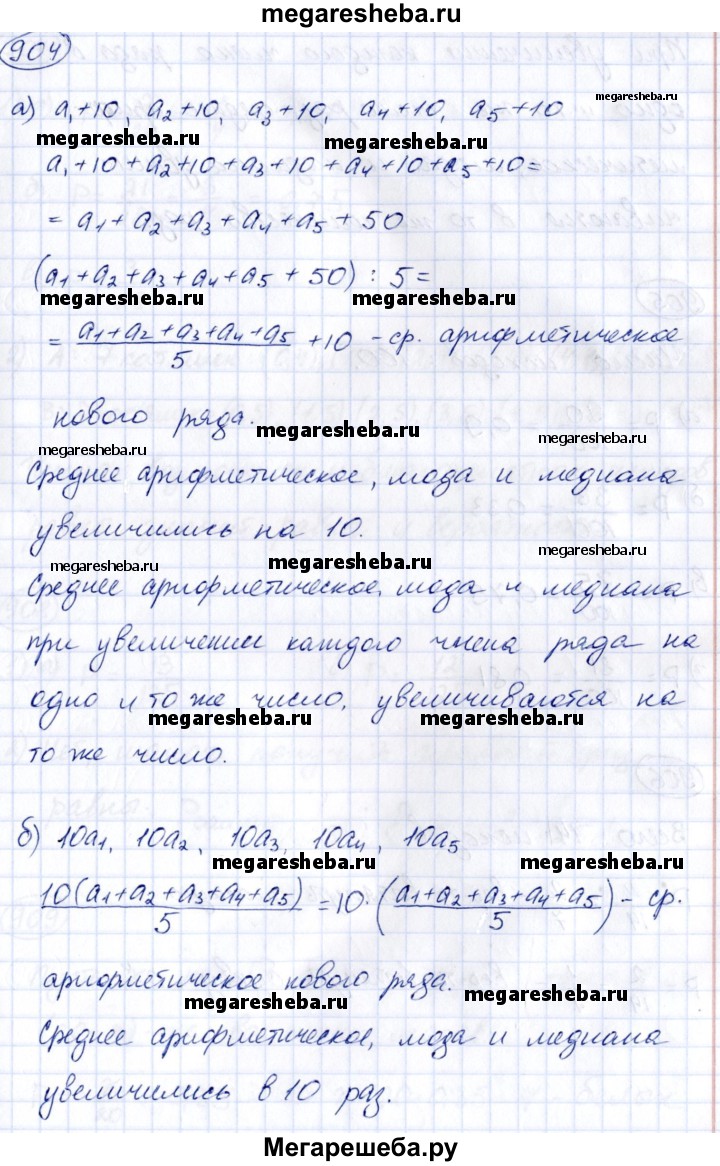 megaresheba.ru
904
а) a₁+10, a₂+10, a₃+10, a₄+10, a₅+10
megaresheba.ru
megaresheba.ru megaresheba.ru
a₁+10+a₂+10+a₃+10+a₄+10+a₅+10=
= a₁+a₂+a₃+a₄+a₅+50
(a₁+a₂+a₃+a₄+a₅+50) : 5 =
megaresheba.ru megaresheba.ru
= (a₁+a₂+a₃+a₄+a₅)/5 +10 - ср. арифметическое
нового ряда.
megaresheba.ru megaresheba.ru
megaresheba.ru
Среднее арифметическое, мода и медиана
увеличились на 10.
megaresheba.ru megaresheba.ru
Среднее арифметическое, мода и медиана
при увеличении каждого члена ряда на
одно и то же число, увеличиваются на
megaresheba.ru megaresheba.ru
то же число.
б) 10a₁, 10a₂, 10a₃, 10a₄, 10a₅
megaresheba.ru megaresheba.ru
10(a₁+a₂+a₃+a₄+a₅)/5 = 10·((a₁+a₂+a₃+a₄+a₅)/5) - ср.
арифметическое нового ряда.
megaresheba.ru megaresheba.ru
Среднее арифметическое, мода и медиана
увеличились в 10 раз.
Мегарешеба.ру